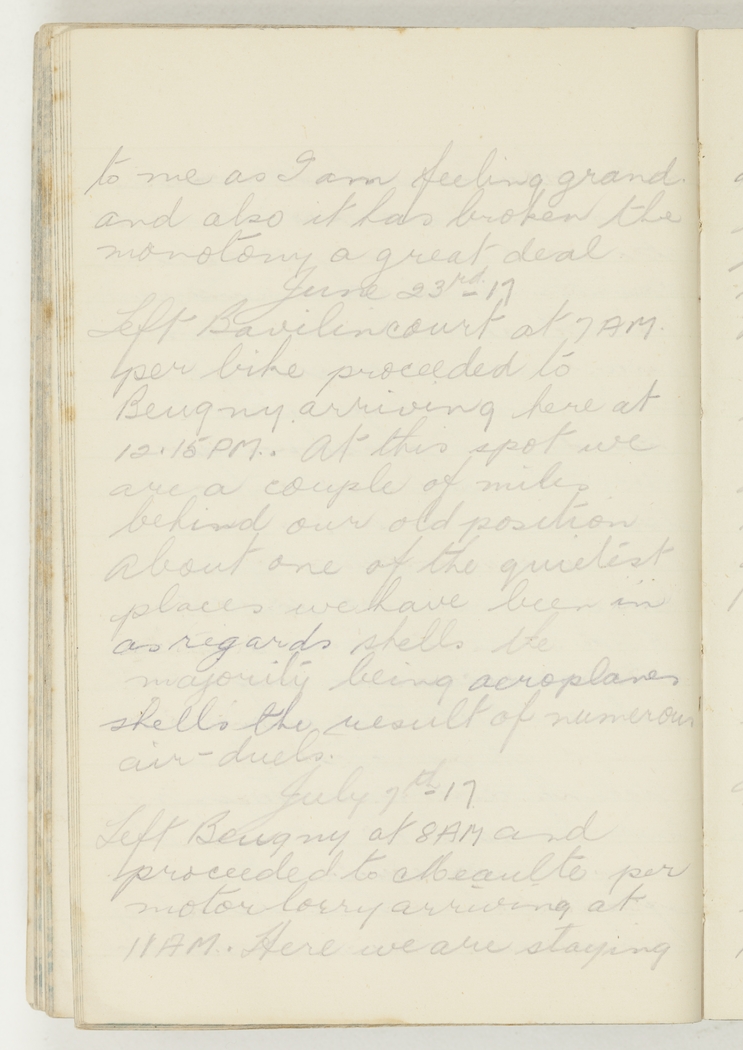 to me as I am feeling grand.
and also it has broken the
monotony a great deal
June 23rd-17
Left Bavilincourt at 7 AM.
per bike proceeded to
Beugny arriving here at
12.15 PM. At this spot we
are a couple of miles
behind our old position
About one of the quietest
places we have been in
as regards shells the
majority being aeroplanes
shells the result of numerous
air-duels.
July 7th-17
Left Beugny at 8AM and
proceeded to Meaulte per
motor lorry arriving at
11AM. Here we are staying